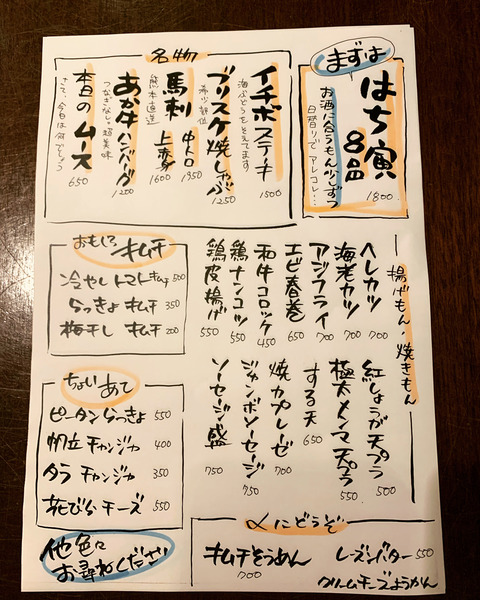 まずは
はち寅
8品
1800
お酒に合うもん少しずつ
日替りで アレコレ…
名物
イチボステーキ
1500
海ぶどうをそえてます
ブリスケ焼しゃぶ
1250
希少部位
馬刺
中トロ
1950
上赤身
1600
熊本直送
あか牛ハンバーグ
1200
つなぎなし。超美味
本日のムース
650
さて、今日は何でしょう
揚げもん・焼きもん
ヘレカツ 700
海老カツ 700
アジフライ 700
エビ春巻 650
和牛コロッケ 450
鶏ナンコツ 550
鶏皮揚げ 550
紅しょうが天プラ 500
極太メンマ天プラ 550
する天 650
焼カプレーゼ 700
ジャンボソーセージ 750
ソーセージ盛 750
おもしろキムチ
冷やしトマトキムチ 500
らっきょ キムチ 350
梅干し キムチ 200
ちょい あて
ピータンらっきょ 550
帆立 チャンジャ 400
タラ チャンジャ 350
花びらチーズ 550
他色々
お尋ねください
〆にどうぞ
キムチそうめん
700
レーズンバター 550
クリームチーズようかん